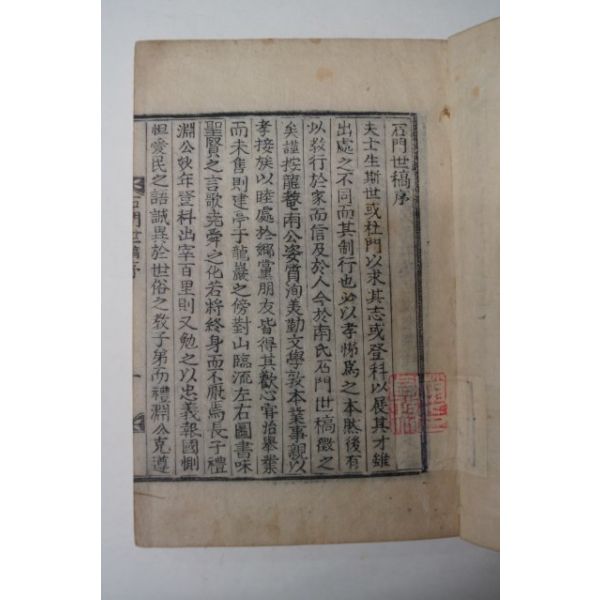 石門世稿序
夫士生斯世或杜門以求其志或登科以展其才雖
出處之不同而其制行也必以孝悌爲之本然後有
以敎行於家而信及於人今於南氏石門世稿徵之
矣謹按龍菴南公姿質洵美勤文學敦本業事親以
孝接族以睦處於鄕黨朋友皆得其歡心甞治擧業
而未售則建亭于龍巖之傍對山臨流左右圖書味
聖賢之言歌堯舜之化若將終身而不厭焉長子禮
淵公妙年登科出宰百里則又勉之以忠義報國惻
怛愛民之語誠異於世俗之敎子弟而禮淵公克遵
石門世稿序
一